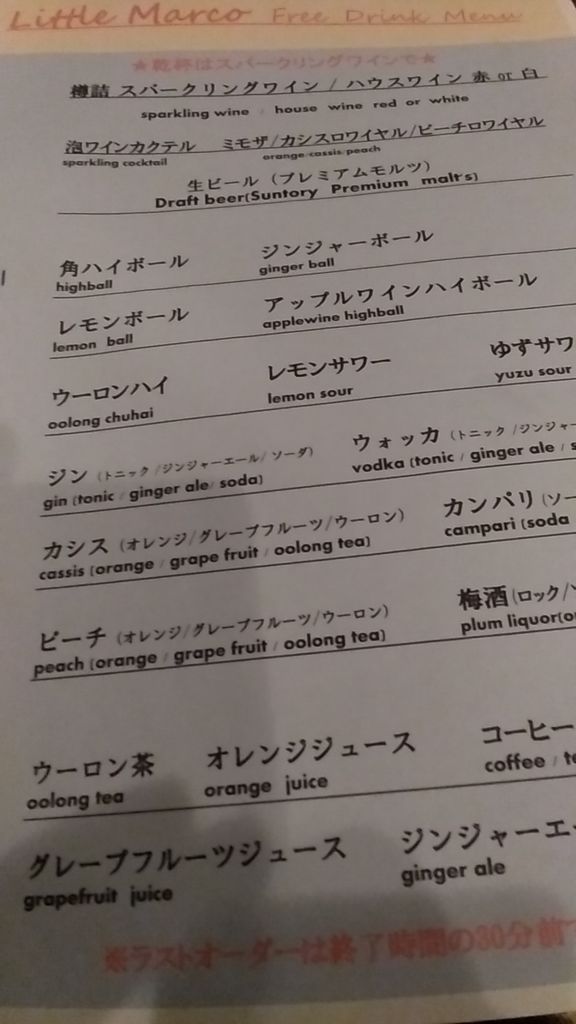 Little Marco Free Drink Menu
★乾杯はスパークリングワインで★
樽詰 スパークリングワイン / ハウスワイン 赤 or 白
sparkling wine / house wine red or white
泡ワインカクテル ミモザ/カシスロワイヤル/ピーチロワイヤル
sparkling cocktail orange/cassis/peach
生ビール (プレミアムモルツ)
Draft beer(Suntory Premium malt's)
角ハイボール ジンジャーボール
highball ginger ball
レモンボール アップルワインハイボール
lemon ball applewine highball
ウーロンハイ レモンサワー ゆずサワ
oolong chuhai lemon sour yuzu sour
ジン (トニック/ジンジャーエール/ソーダ) ウォッカ (トニック/ジンジャー
gin (tonic / ginger ale/ soda) vodka (tonic / ginger ale / s
カシス (オレンジ/グレープフルーツ/ウーロン) カンパリ (ソー
cassis (orange / grape fruit / oolong tea) campari (soda
ピーチ (オレンジ/グレープフルーツ/ウーロン) 梅酒 (ロック/
peach (orange / grape fruit / oolong tea) plum liquor(o
ウーロン茶 オレンジジュース コーヒー
oolong tea orange juice coffee / te
グレープフルーツジュース ジンジャーエ
grapefruit juice ginger ale
※ラストオーダーは終了時間の30分前で